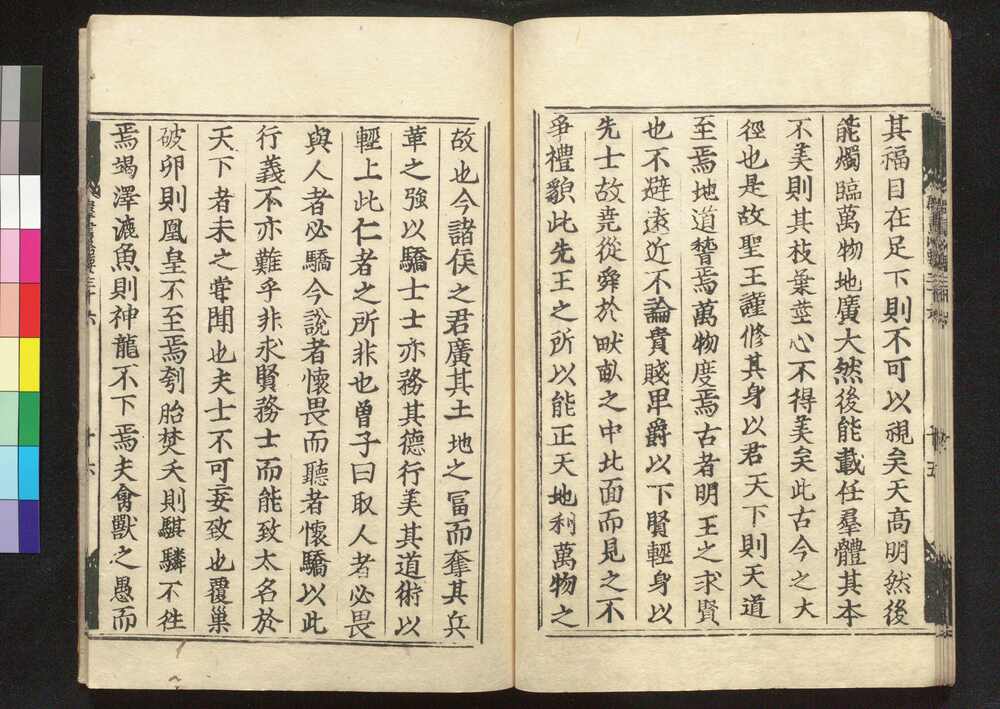 其福目在足下則不可以視矣天高明然後
能燭臨萬物地廣大然後能載任羣體其本
不美則其枝葉莖心不得美矣此古今之大
徑也是故聖王謹修其身以君天下則天道
至焉地道稽焉萬物度焉古者明王之求賢
也不避遠近不論貴賤卑爵以下賢輕身以
先士故堯從舜於畎畝之中北面而見之不
爭禮貌此先王之所以能正天地利萬物之
故也今諸侯之君廣其土地之富而奮其兵
革之強以驕士士亦務其德行美其道術以
輕上此仁者之所非也曾子曰取人者必畏
與人者必驕今說者懷畏而聽者懷驕以此
行義不亦難乎非求賢務士而能致太名於
天下者未之甞聞也夫士不可妄致也覆巢
破卵則凰皇不至焉刳胎焚夭則騏驎不徃
焉竭澤漉魚則神龍不下焉夫禽獸之愚而